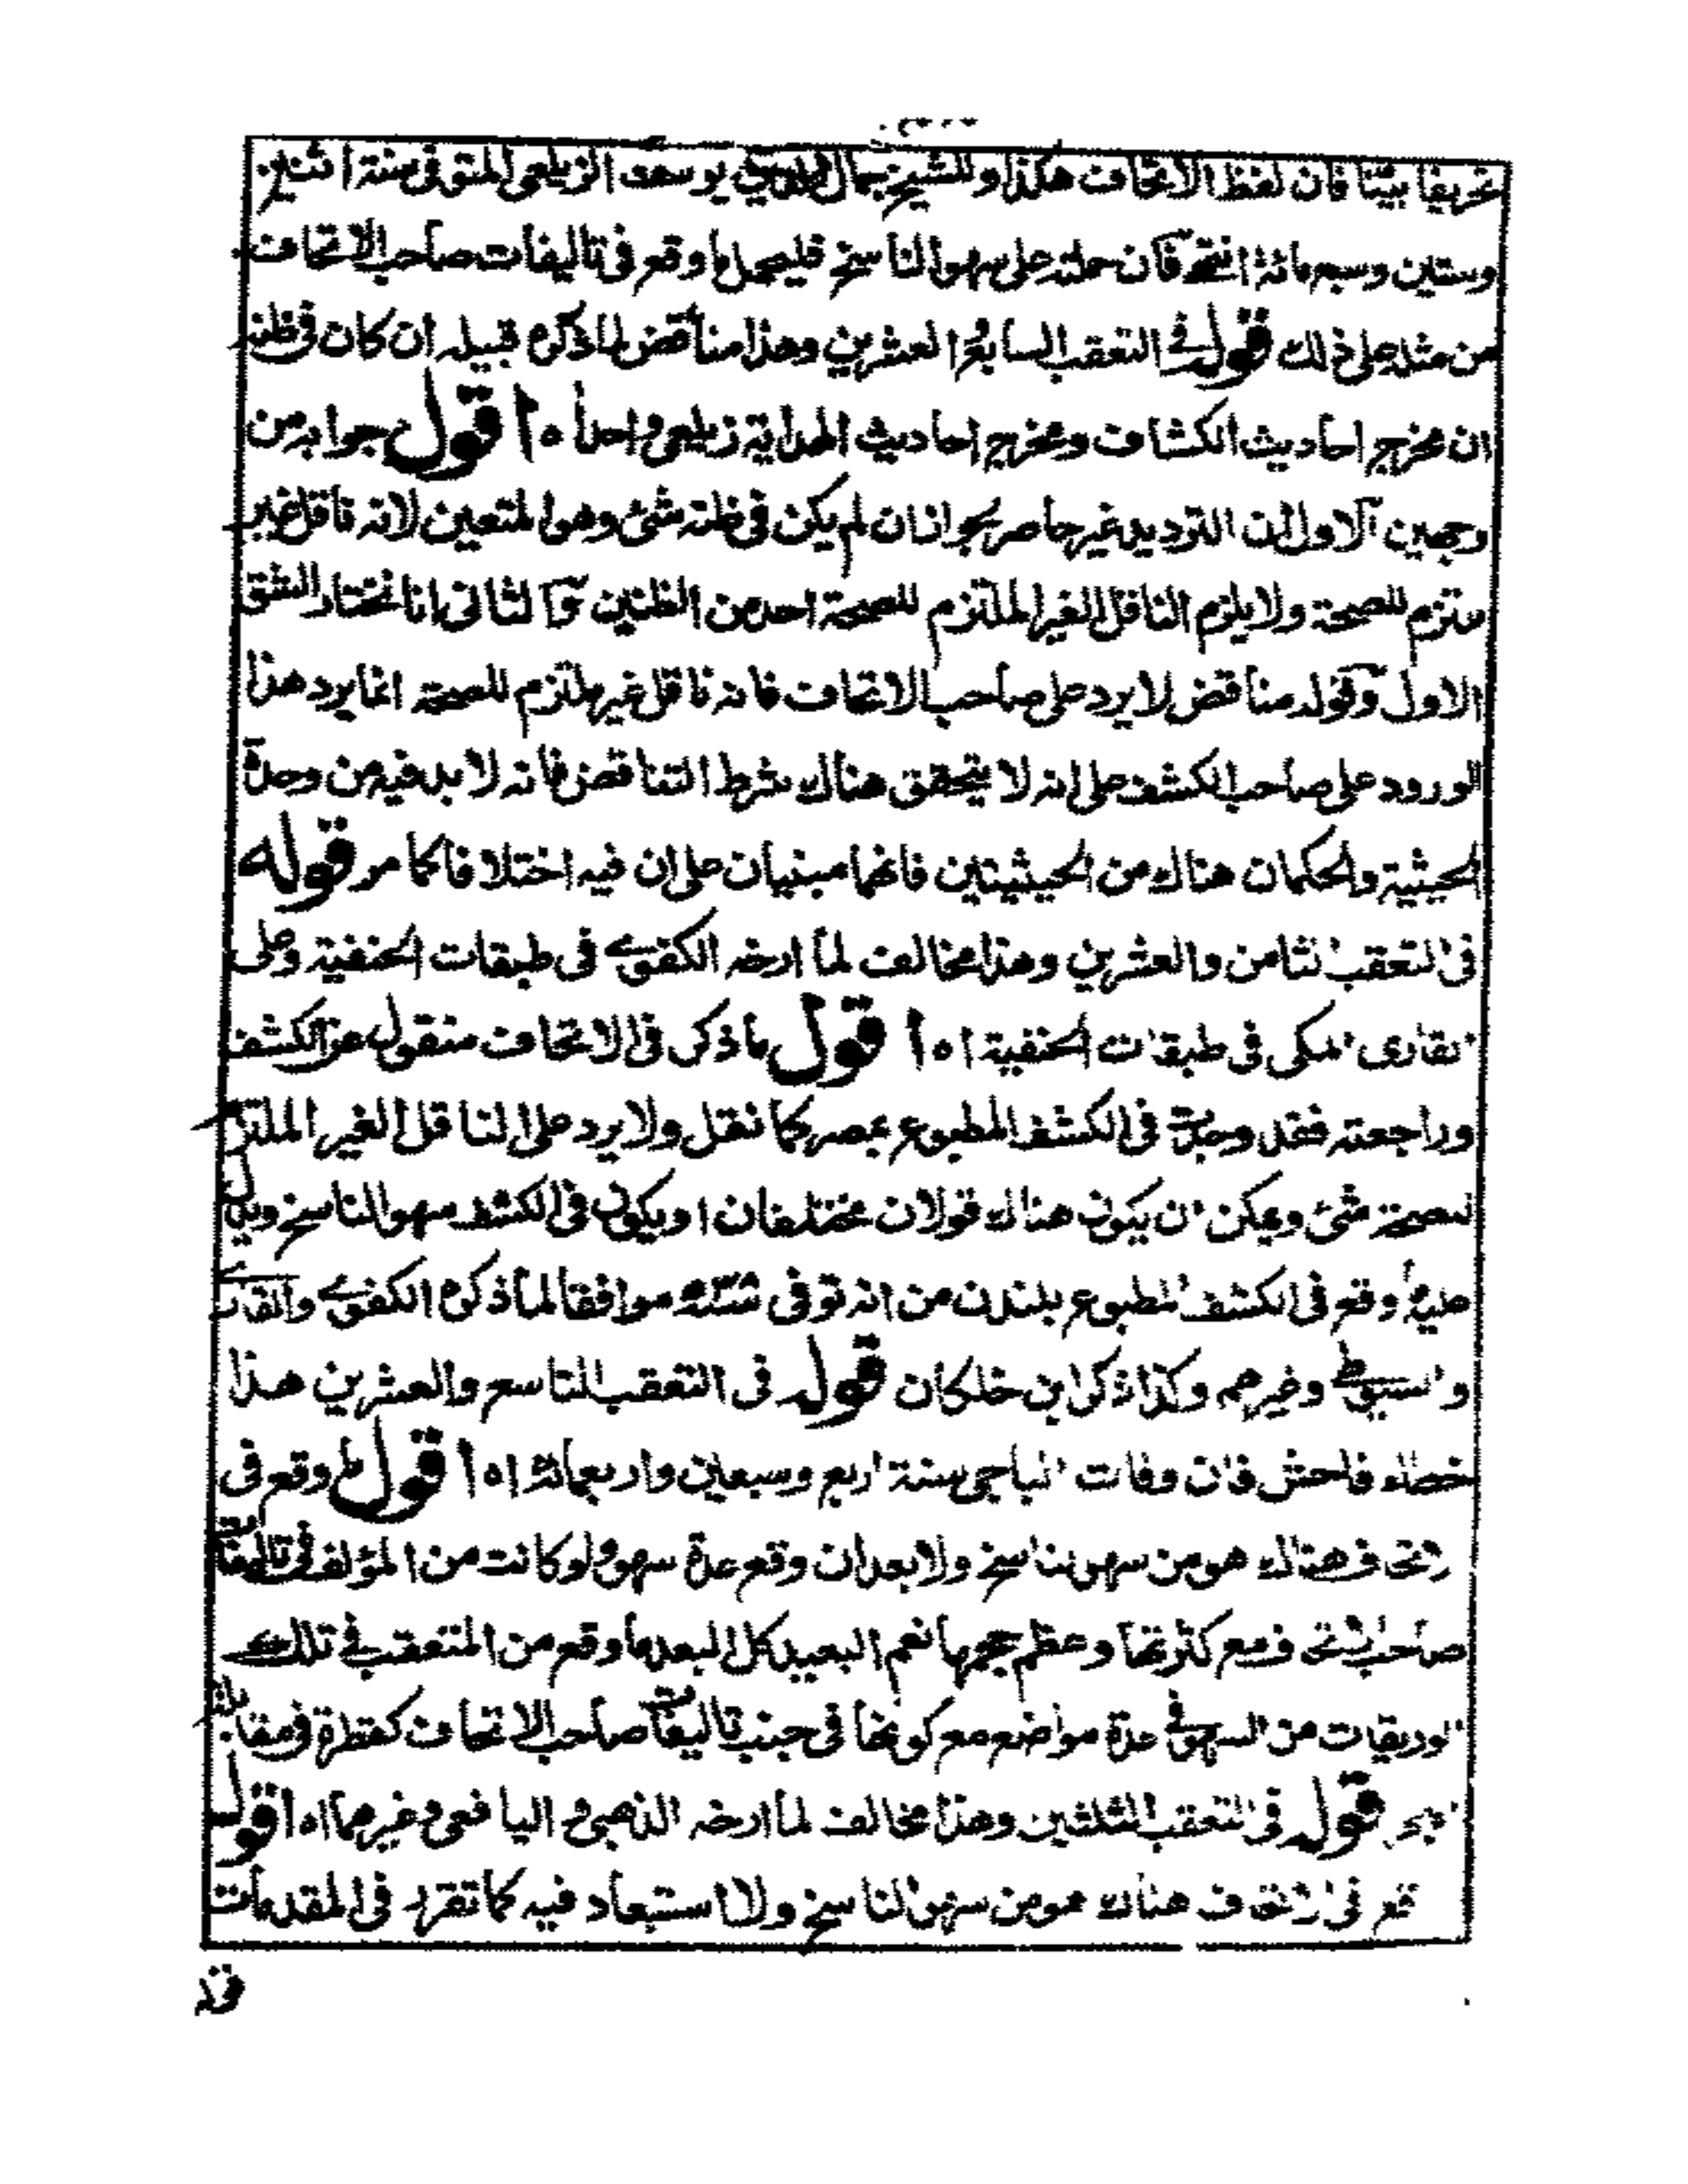 تحريفا بينا فان لفظ الاتحاف هكذا وللشيخ جمال الدين يوسف الزيلعي المتوفى سنة اثنين
وستين وسبعمائة انتهى فان حمله على سهو الناسخ فليحمل ما وقع في تاليفات صاحب الاتحاف
من مثله على ذلك قوله في التعقب السابع والعشرين وهذا مناقض لما ذكره قبيله ان كان في ظنه
ان مخرج احاديث الكشاف ومخرج احاديث الهداية زيلعي واحد اه اقول جوابه من
وجهين الاول ان الترديد غير حاصر لجواز ان لم يكن في ظنه شئ وهو المتعين لانه ناقل غير
ملتزم للصحة ولا يلزم الناقل الغير الملتزم للصحة احد من الظنين والثاني انا نختار الشق
الاول وقوله مناقض لا يرد على صاحب الاتحاف فانه ناقل غير ملتزم للصحة انما يرد هذا
الورود على صاحب الكشف على انه لا يتحقق هناك شرط التناقض فانه لا بد فيه من وحدة
الحيثية والحكمان هناك من الحيثيتين فانهما مبنيان على ان فيه اختلافا كما مر قوله
في التعقب الثامن والعشرين وهذا مخالف لما ارخه الكفوي في طبقات الحنفية وعلى
القاري المكي في طبقات الحنفية اه اقول ما ذكر في الاتحاف منقول عن الكشف
وراجعته فقد وجدته في الكشف المطبوع بمصر كما نقل ولا يرد على الناقل الغير الملتزم
للصحة شئ ويمكن ان يكون هناك قولان مختلفان او يكون في الكشف سهو الناسخ ويدل
عليه ما وقع في الكشف المطبوع بلندن من انه توفى سنة موافقا لما ذكره الكفوي والقاري
والسيوطي وغيرهم وكذا ذكر ابن خلكان قوله في التعقب التاسع والعشرين هذا
خطاء فاحش فان وفات الباجي سنة اربع وسبعين واربعمائة اه اقول ما وقع في
الاتحاف هناك هو من سهو الناسخ ولا بعد ان وقع عدة سهو ولو كانت من المؤلف في تاليفات
صاحب الاتحاف مع كثرتها وعظم حجمها نعم البعيد كل البعد ما وقع من المتعقب في تلك
الوريقات من السهو في عدة مواضع مع كونها في جنب تاليفات صاحب الاتحاف كقطرة في مقابلة
البحر قوله في التعقب الثلثين وهذا مخالف لما ارخه الذهبي واليافعي وغيرهما اه اقول
وقع في الاتحاف هناك هو من سهو الناسخ ولا استبعاد فيه كما تقرر في المقدمات